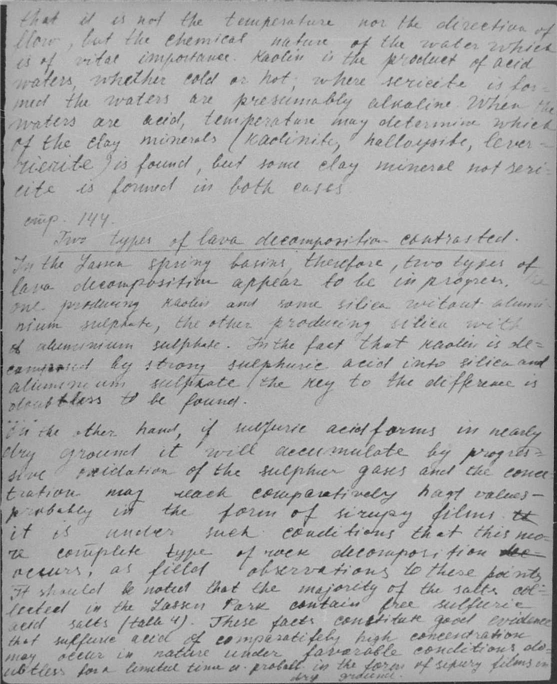 that it is not the temperature nor the direction of
flow, but the chemical nature of the water which
is of vital importance. Kaolin is the product of acid
waters, whether cold or hot; where sericite is for-
med the waters are presumably alkaline. When the
waters are acid, temperature may determine which
of the clay minerals (kaolinite, halloysite, lever-
rierite) is found, but some clay mineral not seri-
cite is formed in both cases
cmp. 144.
Two types of lava decomposition contrasted.
In the Lassen spring basins, therefore, two types of
lava decomposition appear to be in progress, the
one producing kaolin and some silica witout alumi-
nium sulphate, the other producing silica with
aluminium sulphate. In the fact that kaolin is de-
composed by strong sulphuric acid into silica and
aluminium sulphate the key to the difference is
doubtless to be found.
On the other hand, if sulfuric acid forms in nearly
dry ground it will accumulate by progres-
sive oxidation of the sulpher gases and the concen-
tration may reach comparatively high values-
probably in the form of sirupy films.
it is under such conditions that this mo-
re complete type of rock decomposition
occurs, as field observations to these points
It should be noted that the majority of the salts col-
lected in the Lassen Park contain free sulfuric
acid salts (table 4). These facts constitute good evidence
that sulfuric acid of comparatifely high concentration
may occur in nature under favorable conditions do-
ubtless for a limited time a. probabl. in the form of sipury films in
dry